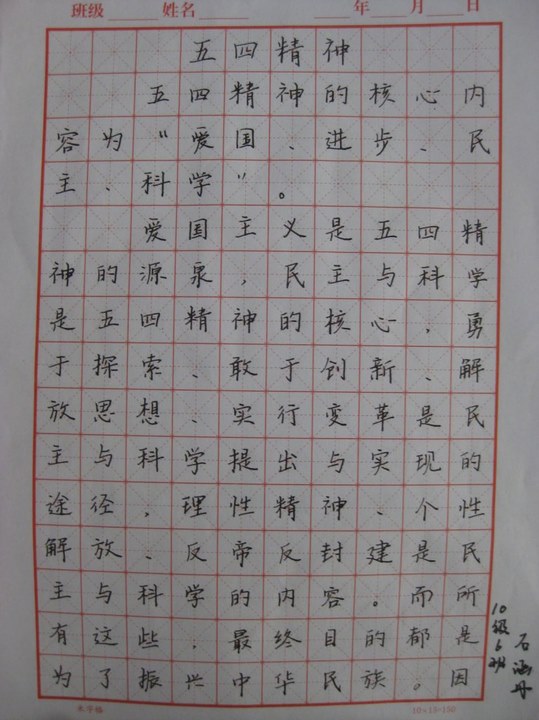 班级 姓名 年 月 日
五四精神
五四精神的核心内
容为“爱国、进步、民
主、科学”。
爱国主义是五四精
神的源泉,民主与科学
是五四精神的核心,勇
于探索、敢于创新、解
放思想、实行变革是民
主与科学提出与实现的
途径,理性精神、个性
解放、反帝反封建是民
主与科学的内容。而所
有这些,最终目的都是
为了振兴中华民族。因
10级6班
石涵丹
米字格